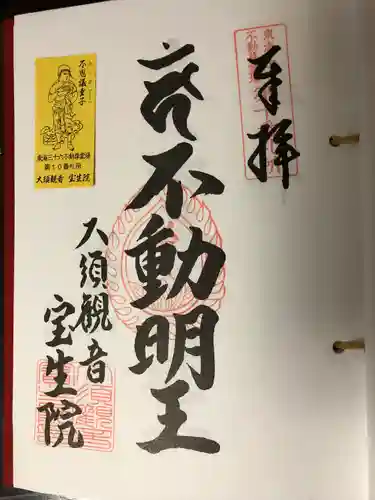 奉拝
不動明王
大須観音
宝生院
不思議童子
東海三十六不動尊霊場
第10番札所
大須観音 宝生院